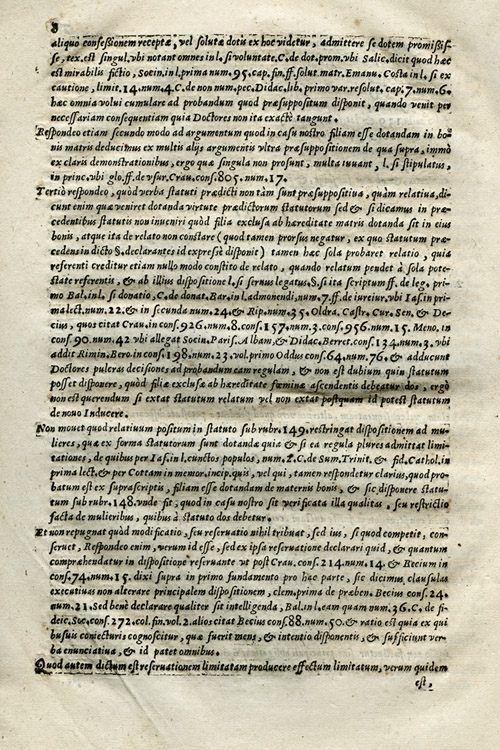 8
aliquo confeßionem receptæ, vel solutæ dotis ex hoc videtur, admittere se dotem promisiß-
se, tex. est singul. vbi notant omnes in l. si voluntate. C. de dot. prom. vbi Salic. dicit quod hæc
est mirabilis fictio, Socin. in l. prima num. 95. cap. fin. ff. solut. matr. Emanu. Costa in l. si ex
cautione, limit. 14. num. 4. C. de non num. pec. Didac. lib. primo var. resolut. cap. 7. num. 6.
hæc omnia volui cumulare ad probandum quod præsuppositum disponit, quando venit per
necessariam consequentiam quia Doctores non ita exactè tangunt.
Respondeo etiam secundo modo ad argumentum quod in casu nostro filiam esse dotandam in bo-
nis matris deducimus ex multis alijs argumentis vltra præsuppositionem de qua supra, immò
ex claris demonstrationibus, ergo quæ singula non prosunt, multa iuuant, l. si stipulatus,
in princ. vbi glo. ff. de vsur. Crau. cons. 805. num. 17.
Tertiò respondeo, quòd verba statuti prædicti non tàm sunt præsuppositiua, quàm relatiua, di-
cunt enim quæ veniret dotanda virtute prædictorum statutorum sed & si dicamus in præ-
cedentibus statutis non inueniri quòd filia exclusa ab hæreditate matris dotanda sit in eius
bonis, atque ita de relato non constare (quod tamen prorsus negatur, ex quo statutum præ-
cedens in dicto §. declarantes id expresse disponit) tamen hæc sola probaret relatio, quia
referenti creditur etiam nullo modo constito de relato, quando relatum pendet à sola pote-
state referentis, & ab illius dispositione l. si seruus legatus. §. si ita scriptum ff. de leg. pri-
mo Bal. in l. si donatio, C. de donat. Bar. in l. admonendi, num. 7. ff. de iureiur. vbi Ias. in pri-
ma lect. num. 22. & in secunda num. 24. & Rip. num. 35. Oldra. Castr. Cur. Sen. & De-
cius, quos citat Crau. in cons. 926. num. 8. cons. 157. num. 3. cons. 956. num. 15. Meno. in
cons. 90. num. 42 vbi allegat Socin. Paris. Alban, & Didac. Berret. cons. 134. num. 3. vbi
addit Rimin. Bero in cons. 198. num. 23. vol. primo Oddus cons. 64. num. 76. & adducunt
Doctores pulcras decisiones ad probandum eam regulam, & non est dubium quin statutum
posset disponere, quòd filiæ exclusæ ab hæreditate fœminæ ascendentis debeatur dos, ergò
non est querendum si extat statutum relatum vel non extat postquam id potest statutum
de nouo Inducere.
Non mouet quod relatiuum positum in statuto sub rubr. 149. restringat dispositionem ad mu-
lieres, quæ ex forma statutorum sunt dotandæ quia & si ea regula plures admittat limi-
tationes, de quibus per Ias. in l. cunctos populos, num. 2. C. de Sum. Trinit. & fid. Cathol. in
prima lect. & per Cottam in memor. incip. quis, vel qui, tamen respondetur clarius, quod pro-
batum est ex suprascriptis, filiam esse dotandam de maternis bonis, & sic disponere statu-
tum sub rubr. 148. vnde fit, quod in casu nostro sit verificata illa qualitas, seu restrictio
facta de mulieribus, quibus à statuto dos debetur.
Et non repugnat quòd modificatio, seu reseruatio nihil tribuat, sed ius, si quod competit, con-
seruet, Respondeo enim, verum id esse, sed ex ipsa reseruatione declarari quid, & quantum
compræhendatur in dispositione reseruante vt post Crau. cons. 214. num. 14 & Becium in
cons. 74. num. 15. dixi supra in primo fundamento pro hac parte, sic dicimus clausulas
executiuas non alterare principalem dispositionem, clem. prima de præben. Becius cons. 24.
num. 21. Sed benè declarare qualiter sit intelligenda, Bal. in l. eam quam num. 36. C. de fi-
deic. Soc. cons. 272. col. fin. vol. 2. alios citat Becius cons. 88. num. 50. & ratio est quia ex qui
busuis coniecturis cognoscitur, quæ fuerit mens, & intentio disponentis, & sufficiunt ver-
ba enunciatiua, & id patet omnibus.
Quod autem dictum est reseruationem limitatam producere effectum limitatum, verum quidem
est,